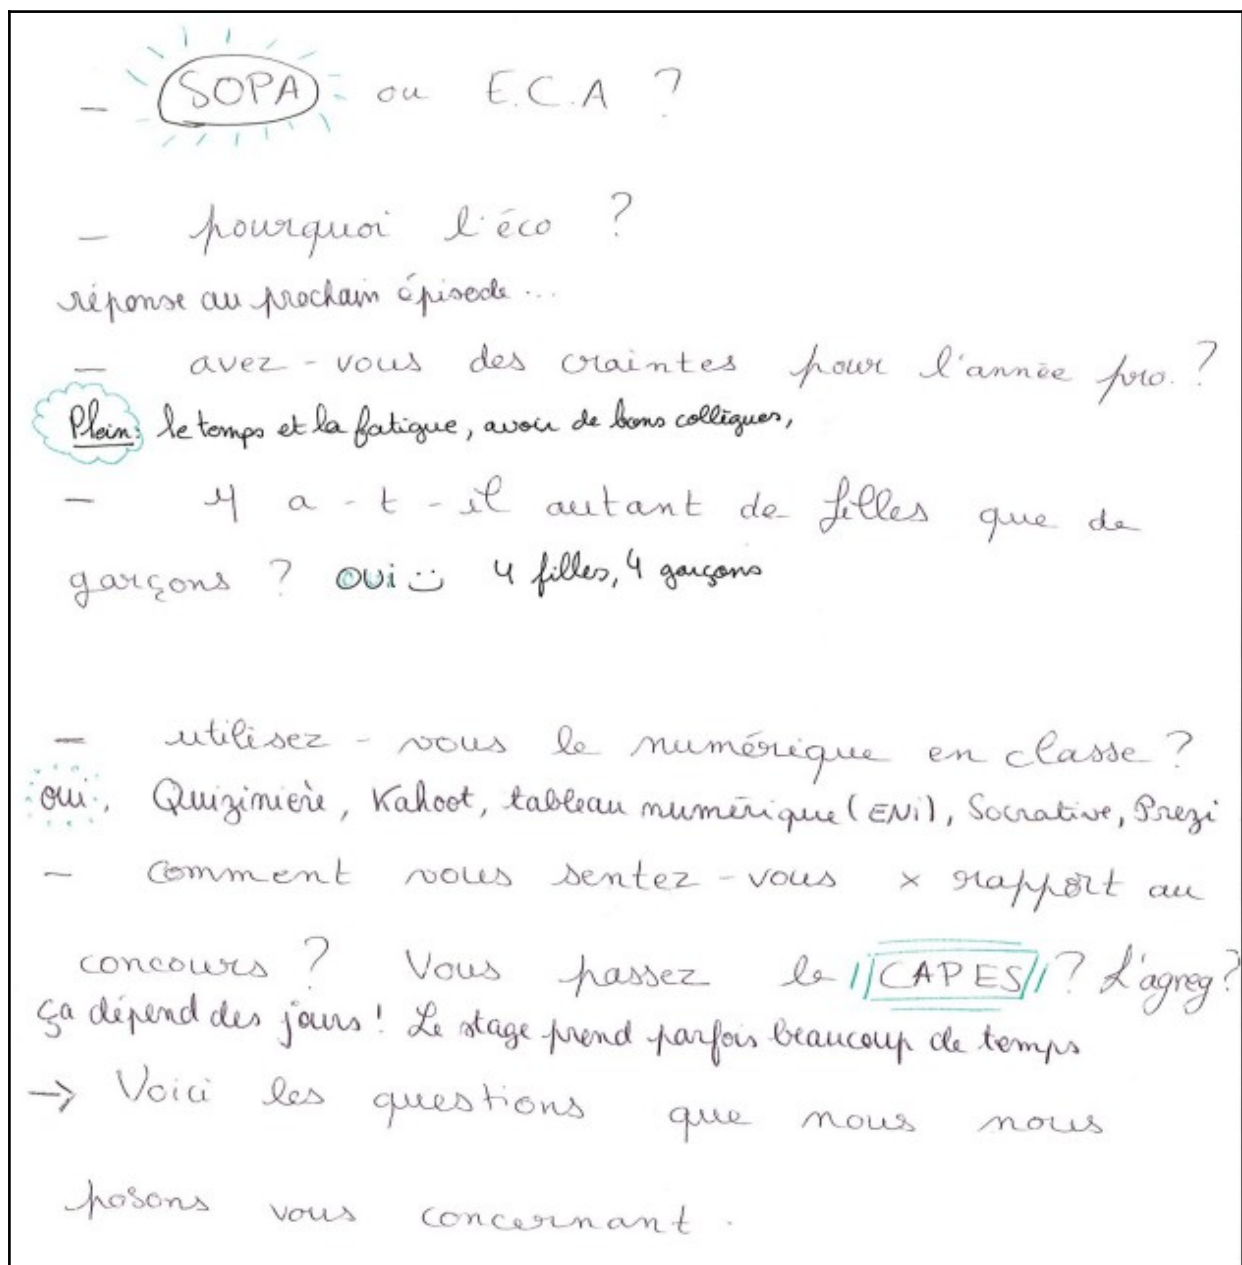 - SOPA ou E.C.A ?
- pourquoi l'éco ?
réponse au prochain épisode...
- avez-vous des craintes pour l'année pro. ?
Plein: le temps et la fatigue, avoir de bons collègues,
- Y a-t-il autant de filles que de
garçons ? OUi :) 4 filles, 4 garçons
- utilisez-vous le numérique en classe ?
oui, Quizinière, Kahoot, tableau numérique (ENi), Socrative, Prezi
- comment vous sentez-vous × rapport au
concours ? Vous passez le CAPES ? L'agreg ?
ça dépend des jours ! Le stage prend parfois beaucoup de temps
→ Voici les questions que nous nous
posons vous concernant.